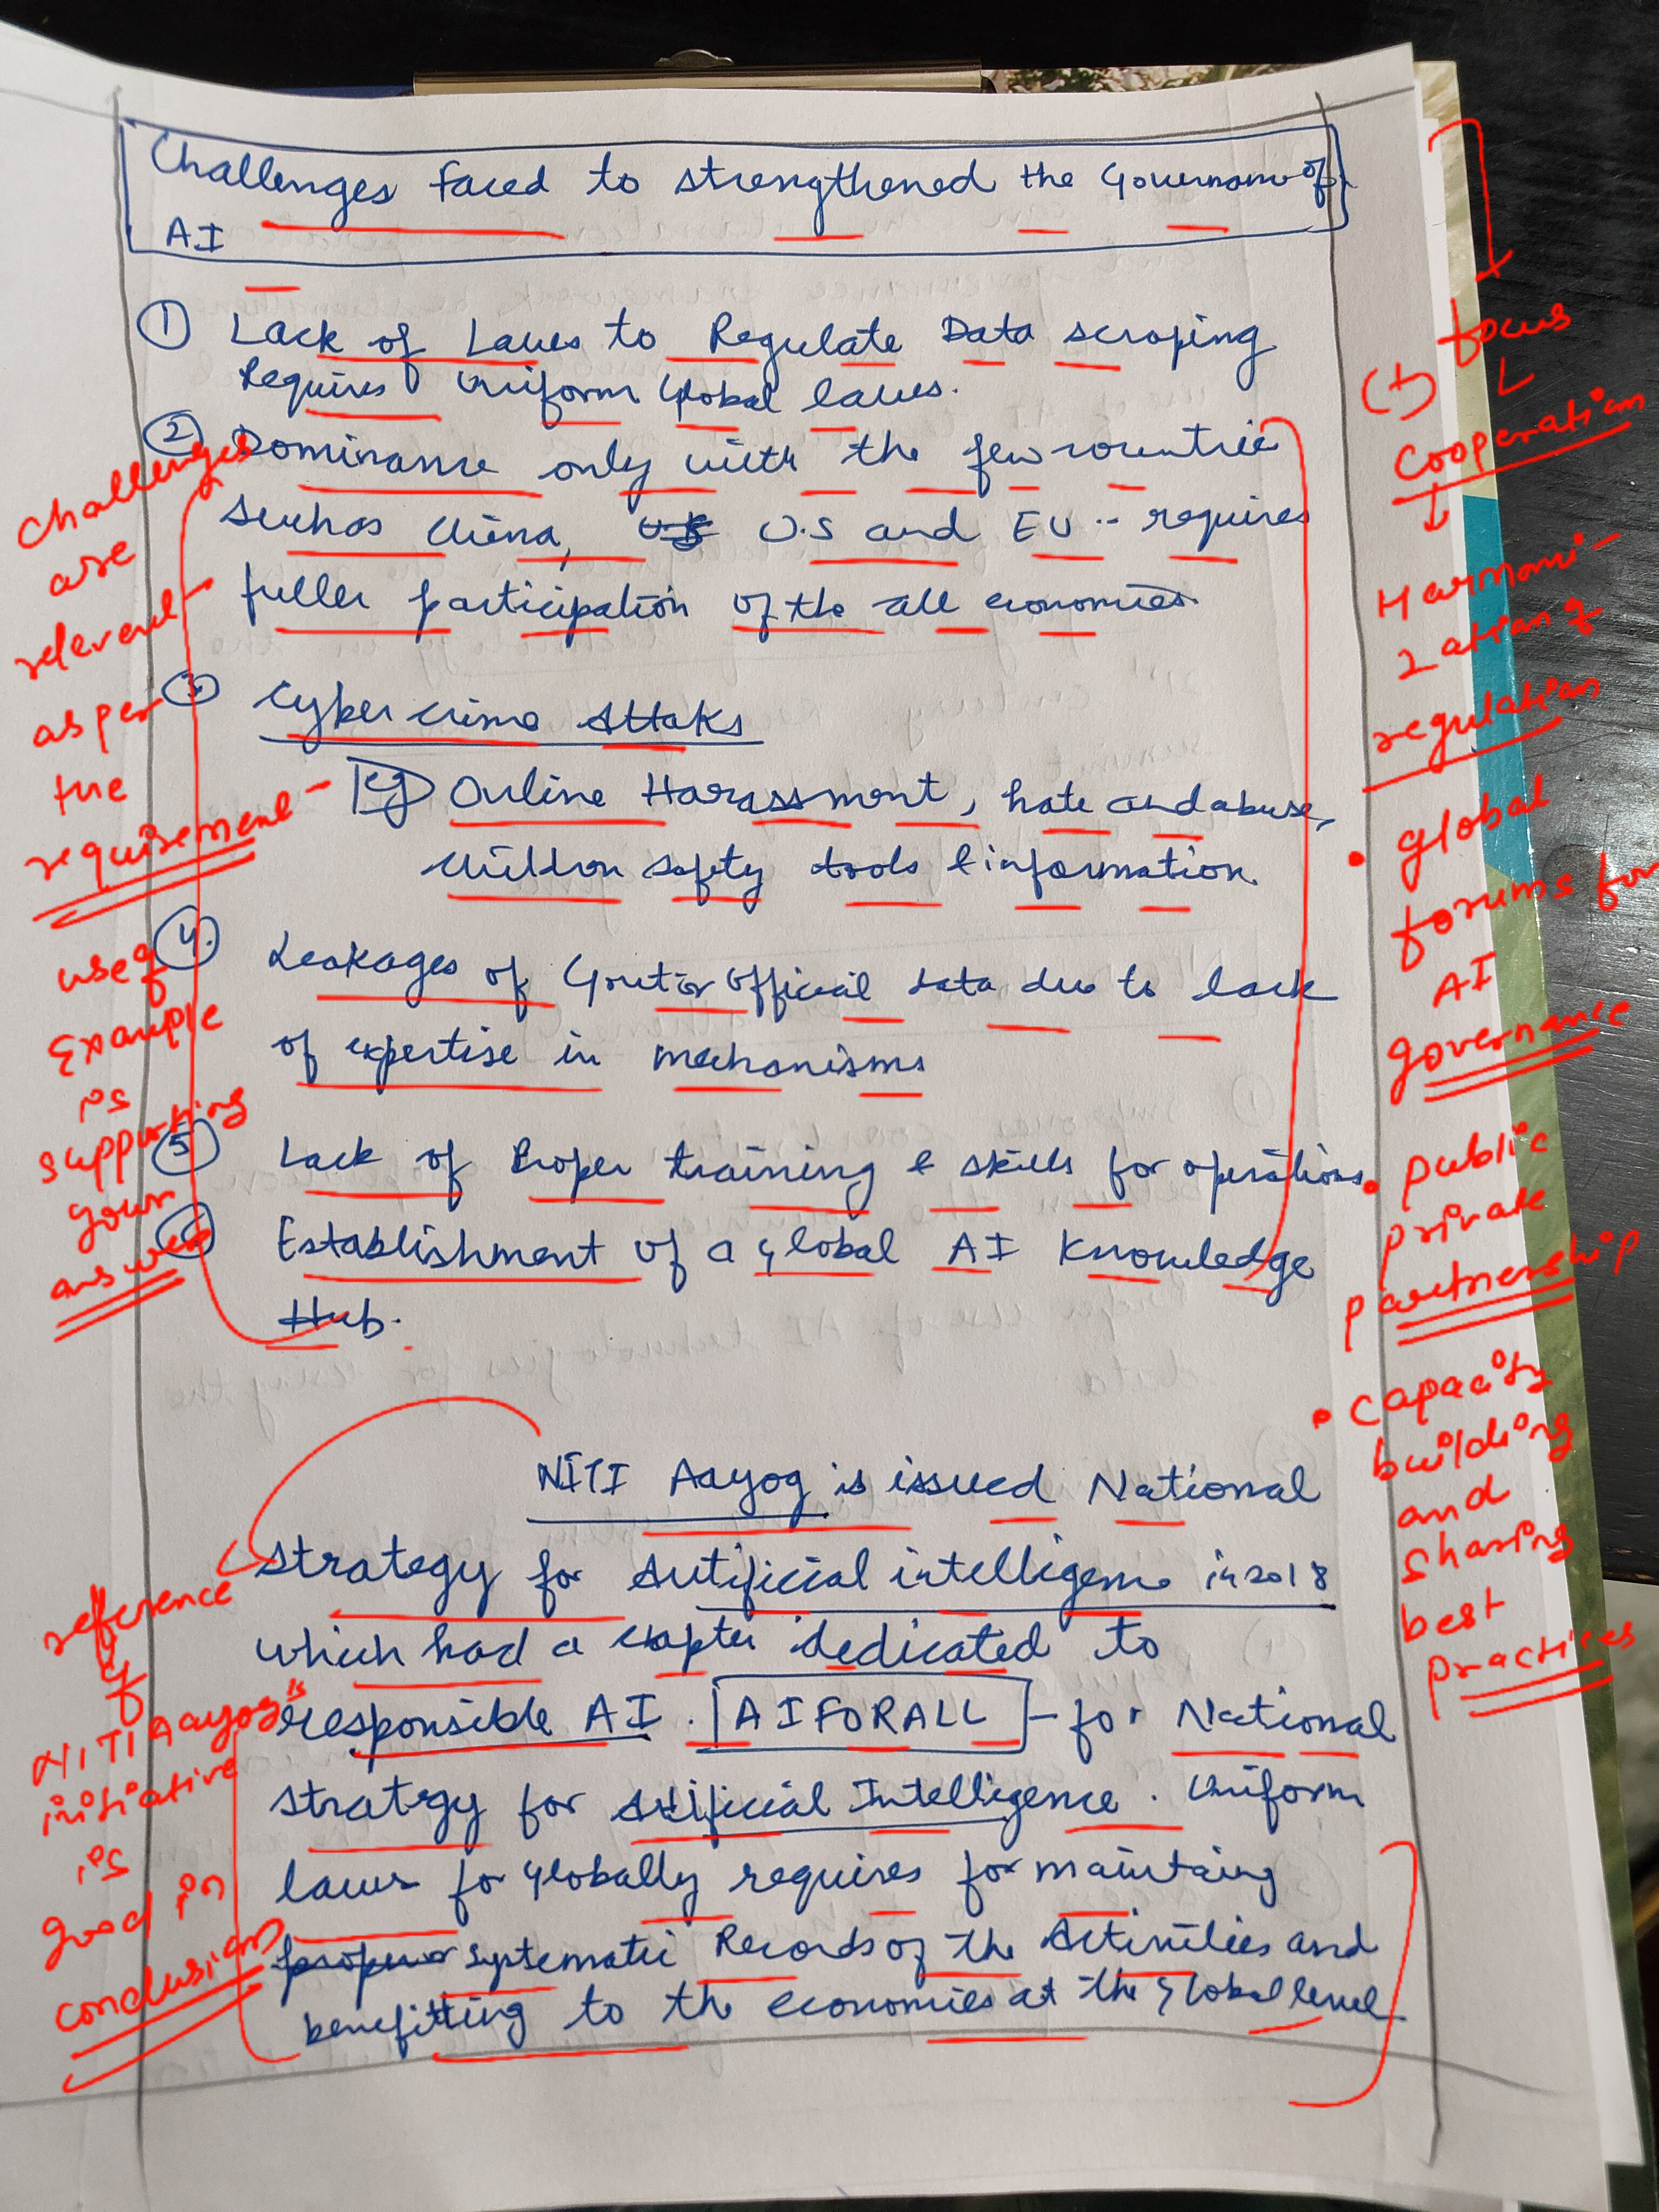 Challenges faced to strengthened the Governance of
AI
① Lack of Laws to Regulate Data scraping
Requires Uniform Global laws.
② Dominance only with the few countries
such as China, U.S and EU -- requires
fuller participation of the all economies.
③ Cyber crime Attaks
Eg Online Harassment, hate and abuse,
Children safety tools & information.
④. Leakages of Govt or Official data due to lack
of expertise in mechanisms
⑤ Lack of Proper training & skills for operations.
⑥ Establishment of a global AI Knowledge
Hub.
NITI Aayog is issued National
strategy for Artificial intelligence in 2018
which had a chapter dedicated to
responsible AI. AIFORALL - for National
strategy for Artificial Intelligence. Uniform
laws for Globally requires for maintaing
proper systematic Records of the Activities and
benefitting to the economies at the Global level
Challenges
are
relevent
as per
the
requirement-
use of
Example
is
supporting
your
answer
reference
of
NITI Aayog's
initiative
is
good in
conclusion
(+) focus
Cooperation
Harmoni-
zation of
regulation
• global
forums for
AI
governance
• public
private
partnership
• capacity
building
and
sharing
best
practices